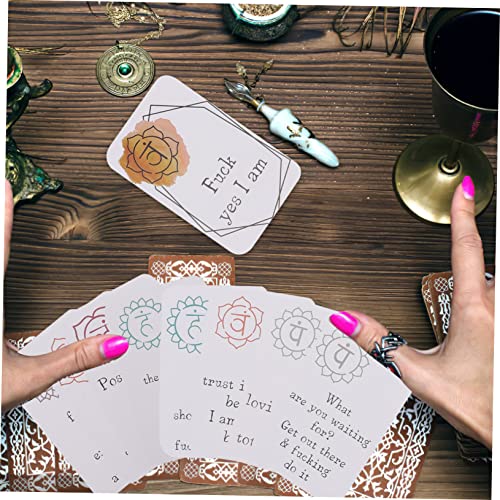 Fuck
yes I am
Pos the
trust i
be lovi
sho I am
fuc
What
are you waiting
for?
Get out there
& fucking
do it